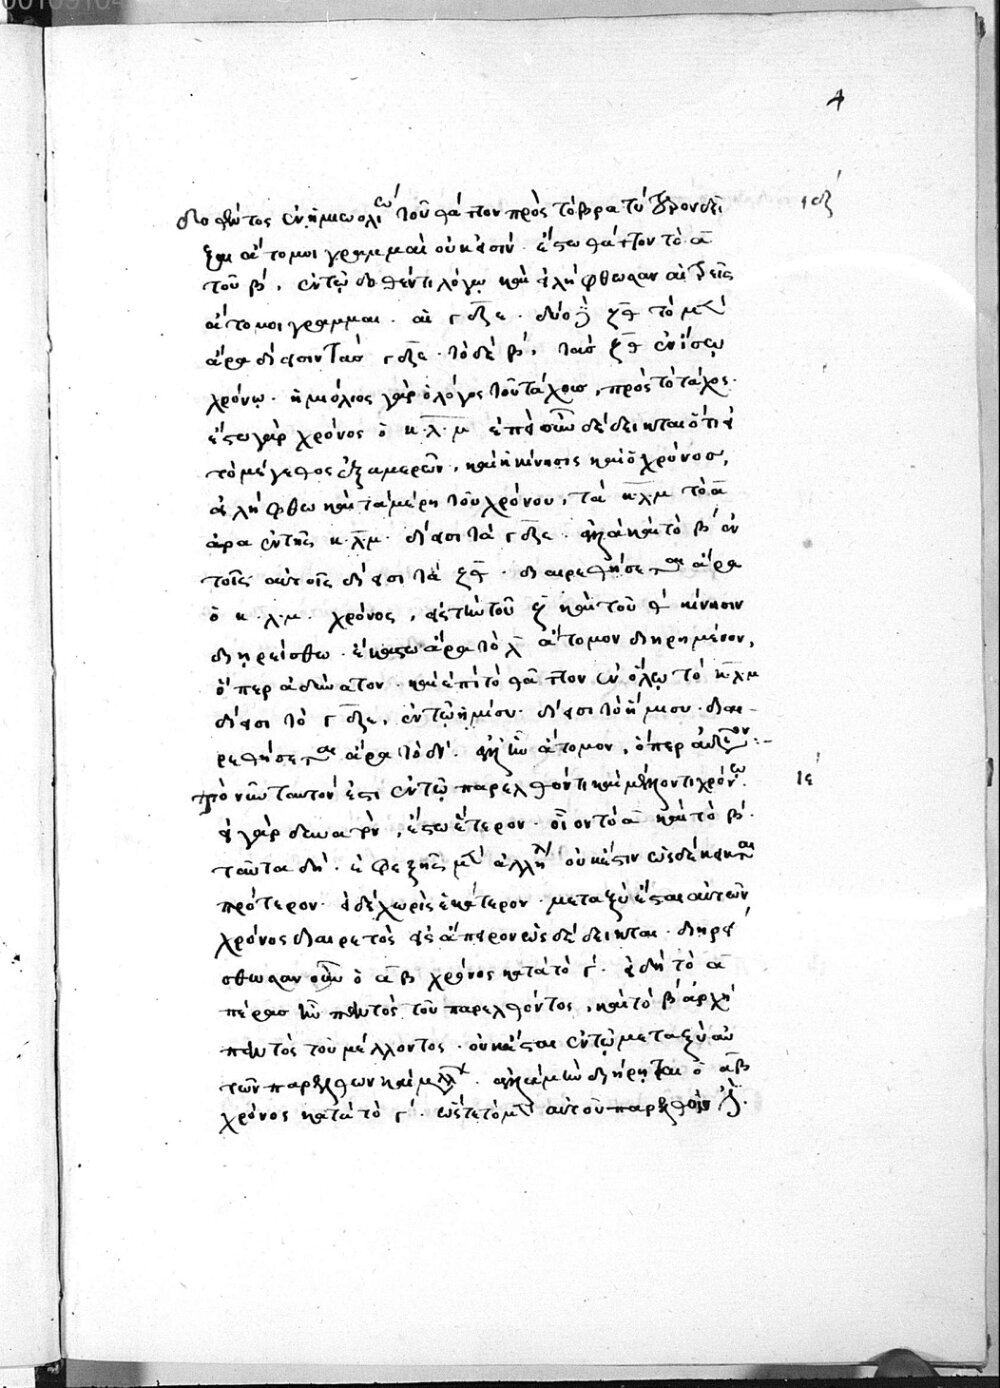 4
δοθέντος ἐν ἡμιολίω τοῦ θάττον πρὸς τὸ βραδύτερον δεῖ ιδ
ξαι ἄτομοι γραμμαὶ οὐκ εἰσίν. ἔστω θάττον τὸ α
τοῦ β, ἐν τῷ δοθέντι λόγω καὶ εἰλήφθωσαν αἱ τρεῖς
ἄτομοι γραμμαι. αἱ γδε. δύο ζθ τὸ μὲν
ἄρα δίεισιν τὰς γδε. τὸ δὲ β, τὰς ζθ ἐν ἴσω
χρόνω. ἡμιόλιος γὰρ ὁ λόγος τοῦ τάχους, πρὸς τὸ τάχος.
ἔστω γὰρ χρόνος ὁ κ.λ.μ ἐπεὶ οὖν δέδεικται ὅτι εἰ
τὸ μέγεθος ἐξ ἀμερῶν, καὶ ἡ κίνησις καὶ ὁ χρόνος,
εἰλήφθω καὶ τὰ μέρη τοῦ χρόνου, τὰ κ.λ.μ τὸ α
ἄρα ἐν τῆς κ.λ.μ. δίεισι τὰ γδε. ἀλλὰ καὶ τὸ β ἐν
τοῖς αὐτοῖς δίεισι τὰ ζθ. διαιρεθήσεται ἄρα
ὁ κ.λ.μ. χρόνος, εἰς τὴν τοῦ ζ καὶ τοῦ θ κίνησιν
διῃρείσθω. ἑκάστω ἄρα τὸ λ ἄτομον διηρημένον,
ὅπερ ἀδύνατον. καὶ ἐπὶ τὸ θᾶττον ἐν ὅλω τὸ κ.λ.μ
δίεισι τὸ γδε, ἐν τῷ ἡμίσυ. δίεισι τὸ ἥμισυ. διαι-
ρεθήσεται ἄρα τὸ δ. ἀλλ' ἦν ἄτομον, ὅπερ ἀδύνατον:-
τὸ νῦν ταυτόν ἐστι ἐν τῷ παρελθόντι καὶ μέλλοντι χρόνω. ιε
εἰ γὰρ δυνατὸν, ἔστω ἕτερον. οἷον τὸ α καὶ τὸ β.
ταῦτα δὴ. ἐφεξῆς μὲν ἀλλήλων οὐκ ἔστιν ὡς δέδεικται
πρότερον. εἰ δὲ χωρὶς ἑκάτερον. μεταξὺ ἔσται αὐτῶν
χρόνος διαιρετὸς εἰς ἄπειρον ὡς δέδεικται. διῃρεί
σθωσαν οὖν ὁ αβ χρόνος κατὰ τὸ γ. ἐδὴ τὸ α
πέρας ἦν παντὸς τοῦ παρελθόντος, καὶ τὸ β ἀρχὴ
παντὸς τοῦ μέλλοντος. οὐκ ἔσται ἐν τῷ μεταξὺ αὐ
τῶν παρελθων καὶ μέλλων. ἀλλὰ μὴν διῄρηται ὁ αβ
χρόνος κατὰ τὸ γ. ὥστε τὸ μὲν αὐτοῦ παρελθὸν